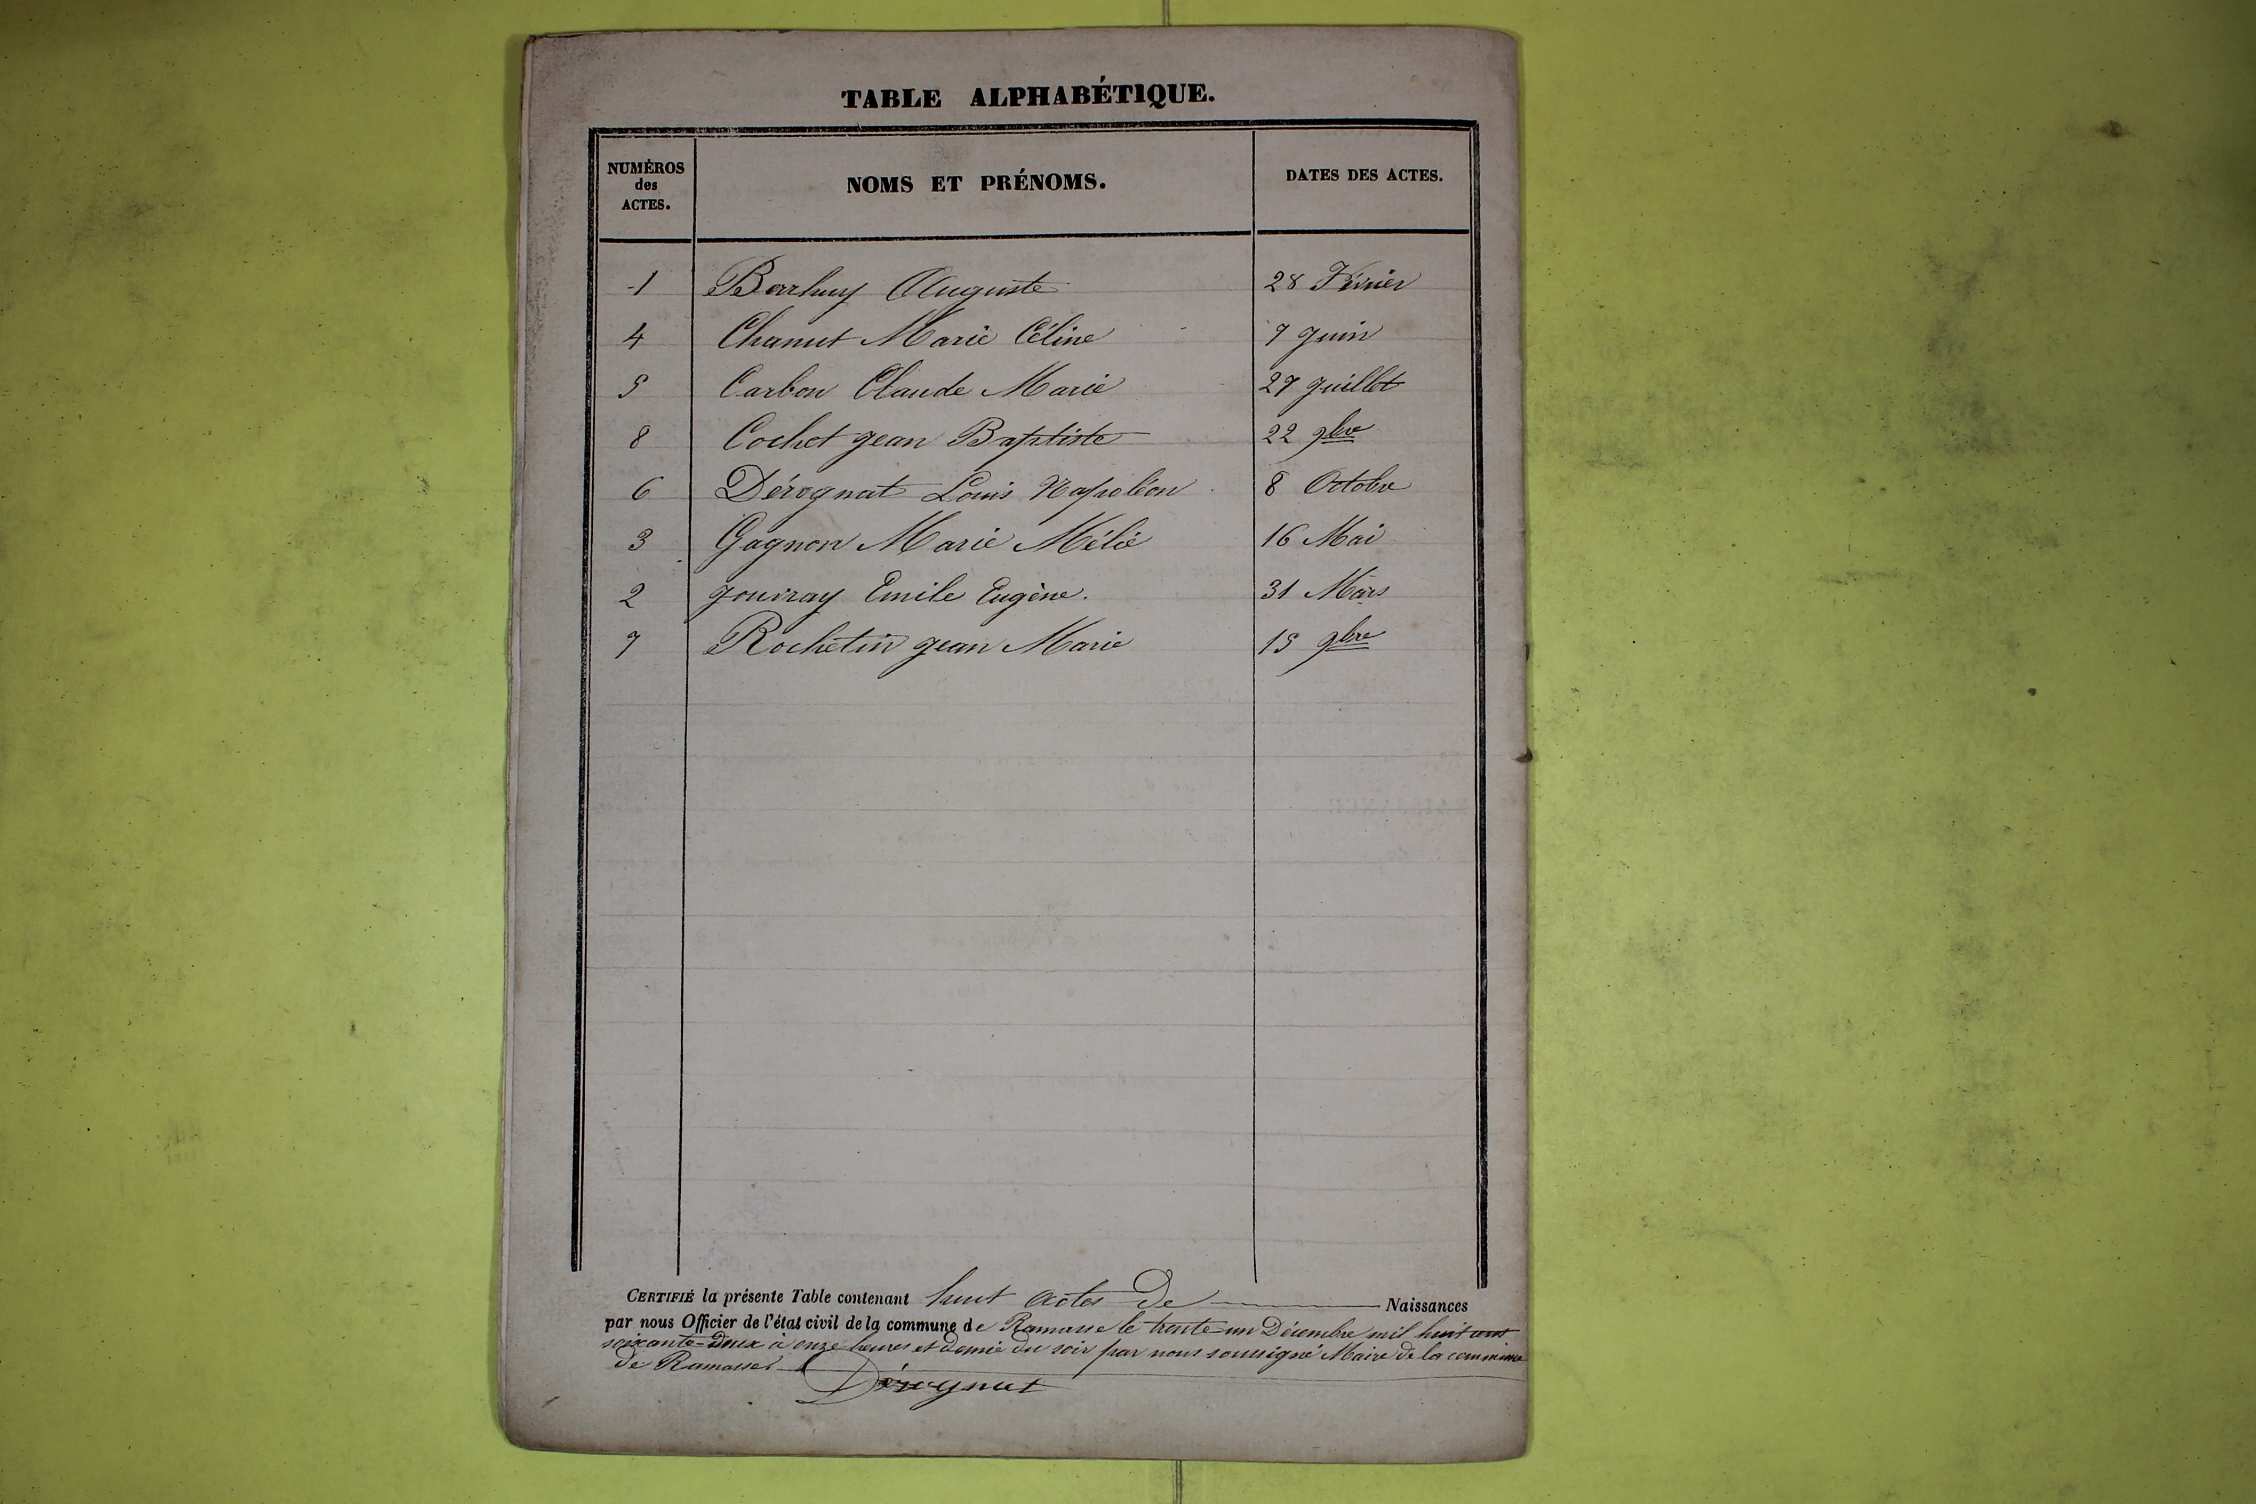 TABLE ALPHABÉTIQUE.
NUMÉROS des ACTES. NOMS ET PRÉNOMS. DATES DES ACTES.
1 Berchuy Auguste 28 Février
4 Chanut Marie Céline 7 Juin
5 Carbon Claude Marie 27 Juillet
8 Cochet Jean Baptiste 22 9bre
6 Dérognat Louis Napoléon 8 Octobre
3 Gagnon Marie Mélie 16 Mai
2 Jouvray Emile Eugène. 31 Mars
7 Rochetin Jean Marie 15 9bre
CERTIFIÉ la présente Table contenant huit actes de Naissances
par nous Officier de l'état civil de la commune de Ramasse le trente-un Décembre mil huit cent
soixante-deux à onze heures et demie du soir par nous soussigné Maire de la commune
de Ramasse
Dérognat